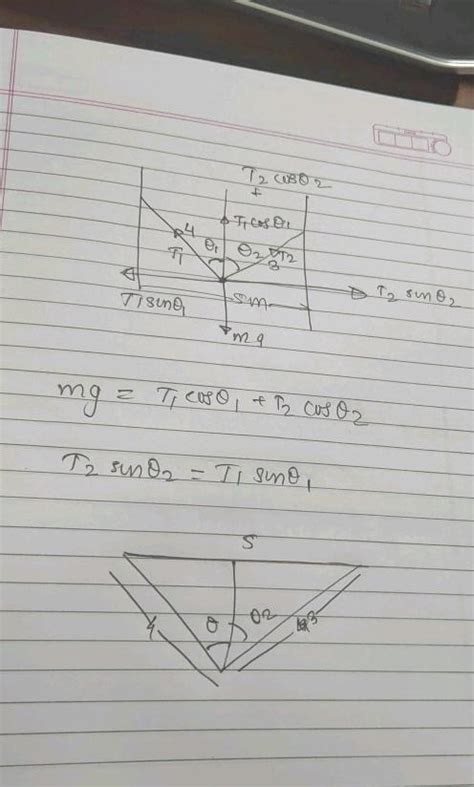 T₂ cosθ₂
+
T₁ cosθ₁
4
θ₁
θ₂
T₂
T₁
3
T₁sinθ₁
5m
T₂ sinθ₂
mg
mg = T₁ cosθ₁ + T₂ cosθ₂
T₂ sinθ₂ = T₁ sinθ₁
5
4
θ
θ2
3